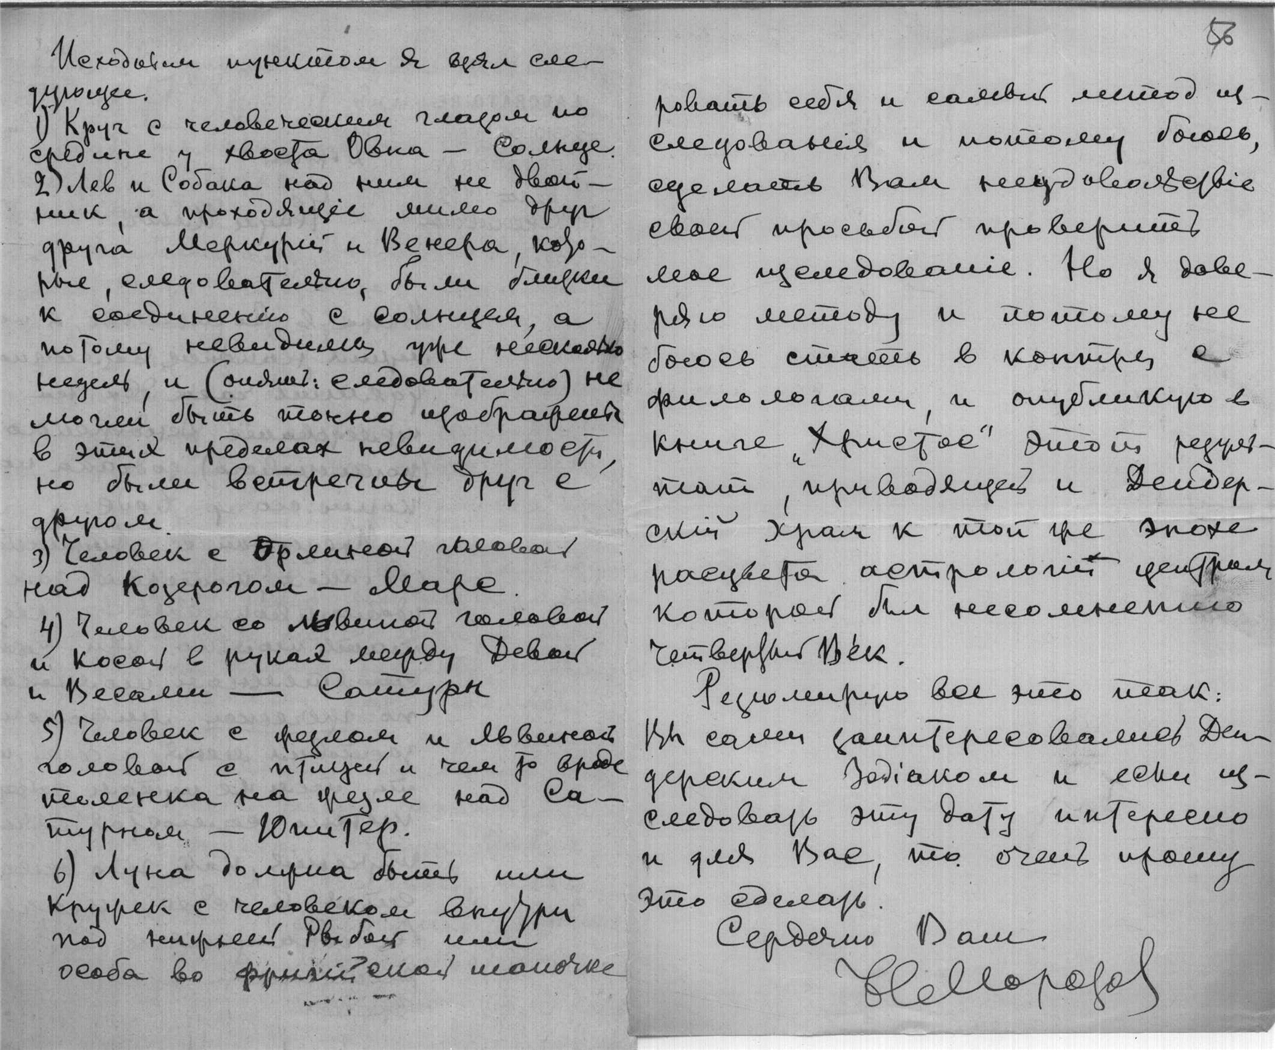 Исходным пунктом я взял сле-
дующее.
1) Круг с человеческим глазом по
средине у хвоста Овна — Солнце.
2) Лев и Собака над ним не двой-
ник, а проходящіе мимо друг
друга Меркурій и Венера, кото-
рые, следовательно, были близки
к соединению с солнцем, а
потому невидимы уже несколько
недель, и (опять: следовательно) не
могли быть точно изображены
в этих пределах невидимости,
но были встречны друг с
другом
3) Человек с Орлиной головой
над Козерогом — Марс.
4) Человек со львиной головой
и косой в руках между Девой
и Весами — Сатурн
5) Человек с жезлом и львиной
головой с птицей и чем то вроде
теленка на жезле над Са-
турном — Юпитер.
6) Луна должна быть или
кружек с человеком внутри
под нижней Рыбой или
особа во фригійской шапочке
56
ровать себя и самый метод из-
следованія и потому боюсь,
сделать Вам неудовольствіе
своей просьбой проверить
мое изследованіе. Но я дове-
ряю методу и потому не
боюсь стать в контры с
филологами, и опубликую в
книге „Христос" этот резуль-
тат, приводящій и Дендер-
скій Храм к той же эпохе
расцвета астрологіи центром
которой был несомненно
четвертый Век.
Резюмирую все это так:
Вы сами заинтересовались Ден-
дерским Зодіаком и если из-
следовать эту дату интересно
и для Вас, то очень прошу
это сделать.
Сердечно Ваш
Н Морозов